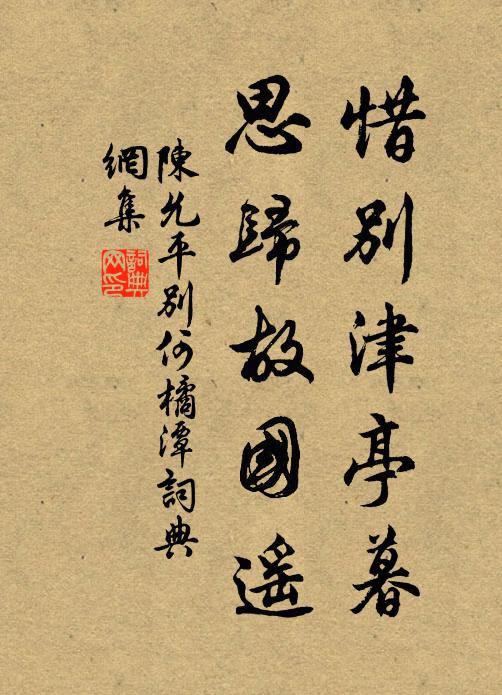 惜別津亭暮
思歸故國遥
陳允平別何橘潭詞典
網集
詞典
网印